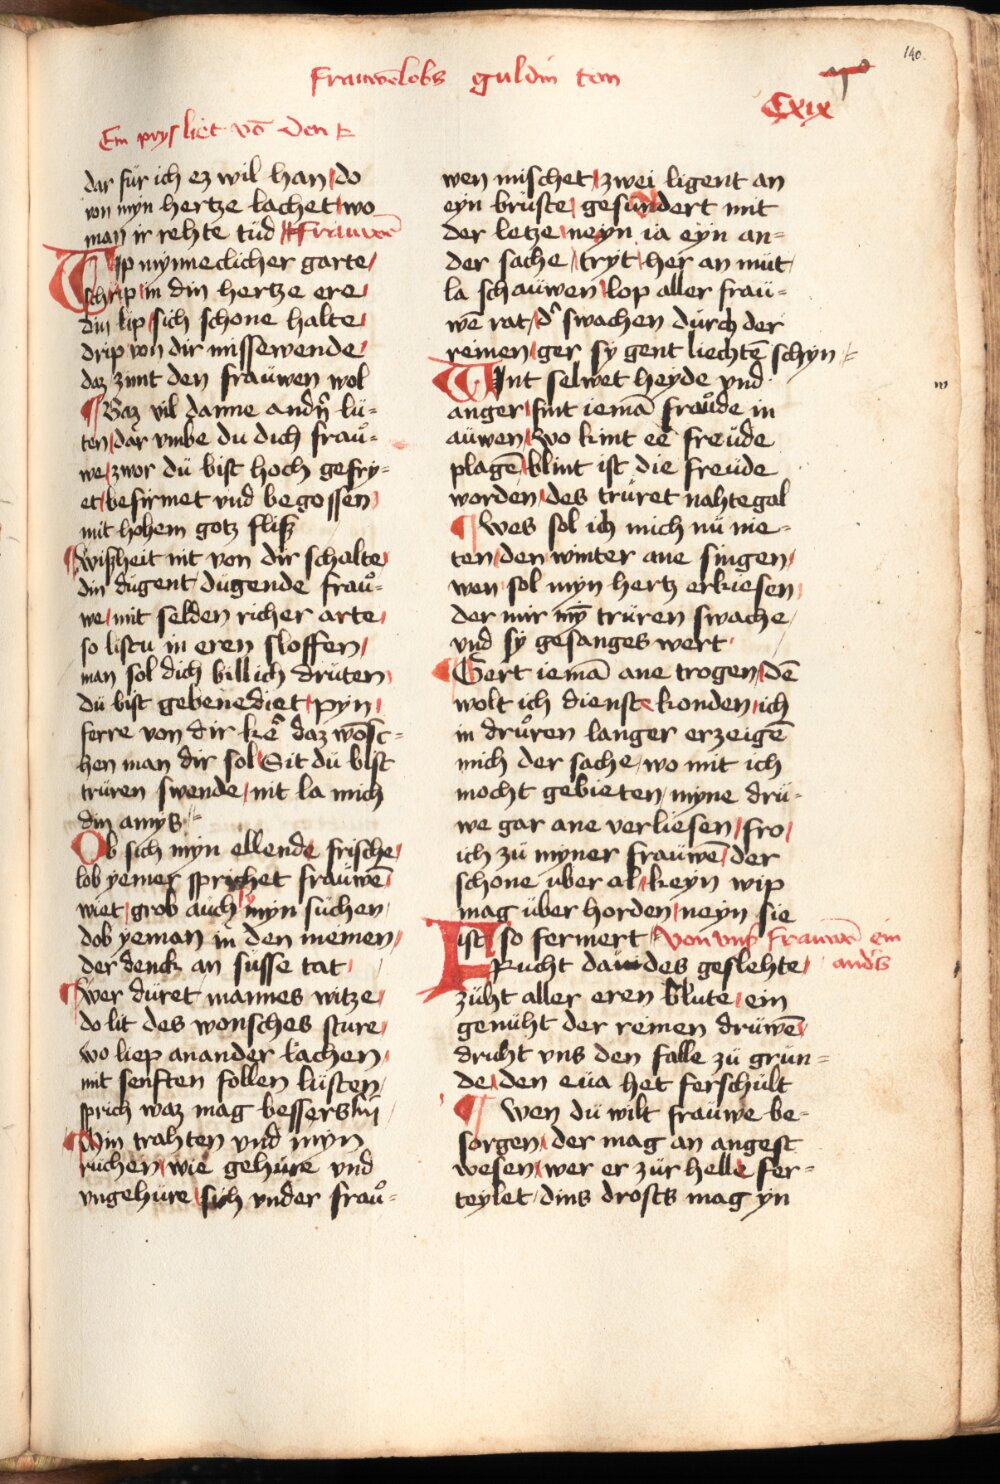 140
Frauwēlobs guldin ton
Cxix
Ein prysliet vō den
dar für ich ez wil han / do
von myn hertze lachet / wo
man ir rehte tüd / Frauwen
Wip mynneclicher garte /
schrip in din hertze ere /
din lip / sich schone halte /
drip von dir missewende /
daz zimt den fraüwen wol
Baz vil danne andn̄ lü-
ten / dar vmbe du dich fraů-
we / zwor dü bist hoch gefry-
et / befirmet vnd begossen /
mit hohem gotz fliß
wißheit nit von dir schalte /
din dügent / dügende fraů-
we / mit selden richer arte /
so listu in eren sloffen /
man sol dich billich drüten /
dü bist gebenediet / pyn /
ferre von dir kē daz wōsc-
hen man dir sol / Sit dü bist
trüren swende / nit la mich
din amys
Ob sich myn ellende frische /
lob yemer sprichet frauwē
wiet / grob auch myn süchen /
dob yeman in den meinen /
der denck an süsse tat /
wer düret mannes witze /
do lit des wonsches sture /
wo liep anander lachen /
mit senften follen lüsten /
sprich waz mag bessers sin /
Min trahten vnd myn
rüchen / wie gehüre vnd
vngehüre / sich vnder fraů-
wen mischet / zwei ligent an
eyn brüste / gesündert mit
der letze / neyn ia eyn an-
der sache / tryt / her an müt /
la schaüwen / lop aller fraü-
wē rat / d' swachen dürch der
reinen / ger sy gent liechtē schyn
Wint selwet heyde vnd
anger / sint iemā fraůde in
aüwen / wo kint ee freüde
plagē / blint ist die freüde
worden / des trüret nahtegal
Wes sol ich mich nü nie-
ten / den winter ane singen /
wen sol myn hertz erkiesen /
der mir mȳ trüren swache /
vnd sy gesanges wert
Gert iemā ane trogen / dē
wolt ich dienste konden / ich
in drůren langer erzeigē
mich der sache / wo mit ich
mocht gebieten / myne drü-
we gar ane verliesen / fro /
ich zü myner fraüwē / der
schone über al / keyn wip
mag über horden / neyn sie
ist so fermert / Von vnß Frauwē ein
anders
Frucht dauides geslehte /
züht aller eren blute / ein
genüht der reinen drüwē /
dricht vns den falle zü grün-
de / den eüa het ferschült
Wen dü wilt fraüwe be-
sorgen / der mag an angest
wesen / wer er zür helle fer-
teylet / dins drosts mag yn